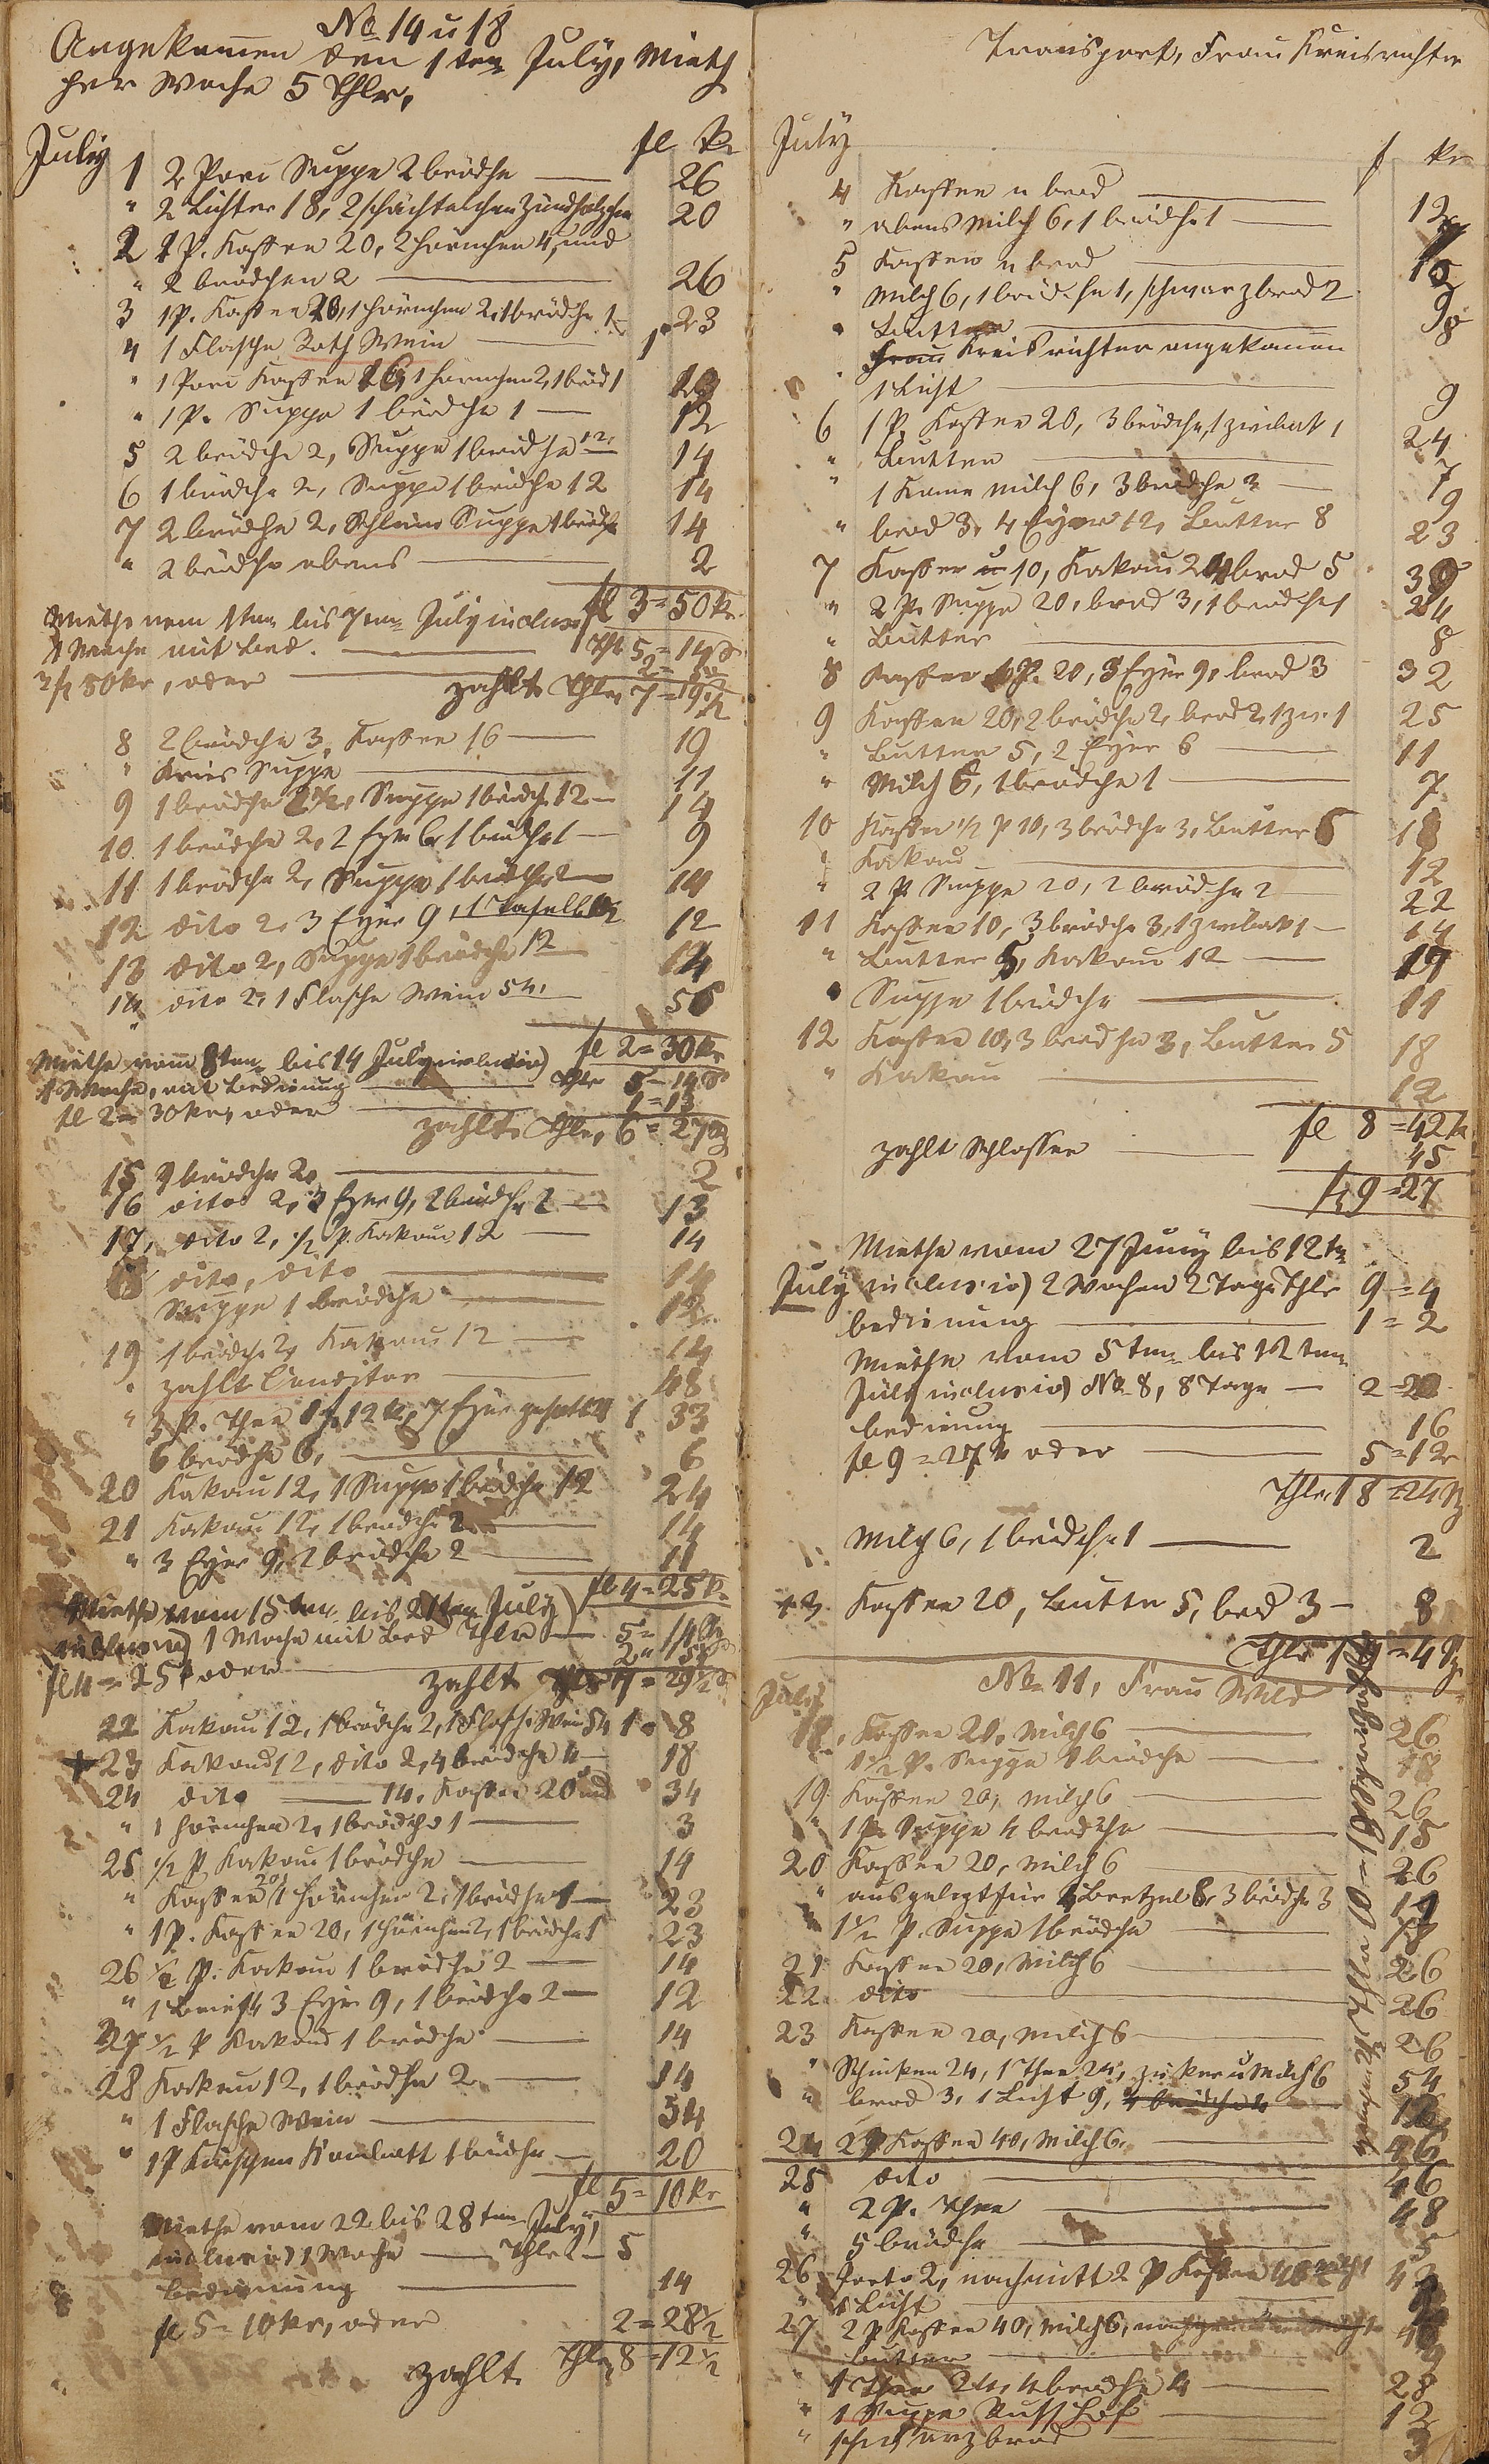 No 14 u 18
Angekommen den 1ten July, Mieth
per Woche 5 Thlr,
July fl kr
1 2 Pori Suppe 2 brödche 26
" 2 Lichter 18, 2 schächtelchen Zündhölzchen 20
2 1 P. Kaffee 20, 2 hörnchen 4, und
" 2 brödchen 2 26
3 1 P. Kaffee 20, 1 hörnchen 2, 1 brödche 1 23
4 1 Flasche Roth Wein 1"
" 1 Pori Kaffee 16, 1 hörnchen 2, 1 bröd 1 19
" 1 P. Suppe 1 brödche 1 12
5 2 brödche 2, Suppe 1 brödche 12 14
6 1 brödche 2, Suppe 1 brödche 12 14
7 2 brödche 2, Schleim Suppe 1 brödch 14
" 2 brödche abens 2
fl 3=50 kr
Miethe vom 1ten bis 7ten July inclusiv
1 Woche mit Bed. Thlr 5=14
zahlt Thlr 7=19
8 2 brödche 3, Kaffee 16 19
" Kries Suppe 11
9 1 brödche 2, Suppe 1 brödch 12 14
10 1 brödche 2, 2 Eyer 6, 1 brödche 1 9
11 1 brödche 2, Suppe 1 brödche 12 14
12 dito 2, 3 Eyer 9, 1 12
13 dito 2, Suppe 1 brödche 12 14
14 dito 2, 1 Flasche Wein 54, 56
fl 2=30 kr
Miethe vom 8ten bis 14 July inclusiv)
1 Woche, mit Bedienung Thlr 5=14
fl 2=30 kr, oder 1=13
zahlt Thlr, 6=27
15 2 brödche 2, 2
16 dito 2, 3 Eyer 9, 2 brödche 2 13
17, dito 2, 1/2 P. Kakau 12 14
18 dito, dito 14
Suppe 1 brödche 12
19 1 brödche 2, Kakau 12 14
" zahlt Conditor 48
" 3 P. Thee 1 f. 12 kr, 7 Eyer 1 33
6 brödche 6, 6
20 Kakau 12, 1 Suppe 1 brödche 12 24
21 Kakau 12, 1 brödche 2 14
" 3 Eyer 9, 2 brödche 2 11
fl 4=25 kr
Miethe vom 15ten bis 21ten July
inclusiv) 1 Woche mit Bed Thlr 5=14
fl 4=25 kr oder 2"15
zahlt Thlr 7=29 1/2
22 Kakau 12, 1 brödche 2, 1 Flasche Wein 54 1" 8
+ 23 Kakau 12, dito 2, 4 brödche 4 18
24 dito 14, Kaffee 20 und 34
" 1 hörnchen 2, 1 brödche 1 3
25 1/2 P Kakau 1 brödche 14
" Kaffee 20, 1 hörnchen 2, 1 brödche 1 23
" 1 P. Kaffee 20, 1 hörnchen 2, 1 brödche 1 23
26 1/2 P. Kakau 1 brödche 2 14
" 1 Brief 3 Eyer 9, 1 brödche 2 12
27 1/2 P Kakau 1 brödche 14
28 Kakau 12, 1 brödche 2 14
" 1 Flasche Wein 54
" 1 P Kirschen 1 brödche 20
fl 5=10 kr
Miethe vom 22 bis 28ten July,
inclusiv) 1 Woche Thlr 5
Bedienung 14
fl 5=10 kr, oder 2=28 1/2
zahlt Thlr 8=12 1/2
Transport, Frau Kreisrichter
July f kr
4 Kaffee u brod
" abens Milch 6, 1 brödche 1 12
5 Kaffee u brod
" Milch 6, 1 brödche 1, schwarzbrod 2 9
" Butter 8
" Frau Kreisrichter angekommen
1 Licht 9
6 1 P. Kaffee 20, 3 brödche, 1 zwibak 1 24
" Butter 7
" 1 Kanne Milch 6, 3 brödche 3 9
" brod 3, 4 Eyer 12, Butter 8 23
7 Kaffee 10, Kakau 24 brod 5 39
" 2 P. Suppe 20, brod 3, 1 brödche 1 24
" Butter 8
8 Kaffee 1 P. 20, 3 Eyer 9, brod 3 32
9 Kaffee 20, 2 brödche 2, brod 2, 1 zw. 1 25
" Butter 5, 2 Eyer 6 11
" Milch 6, 1 brödche 1 7
10 Kaffee 1/2 P 10, 3 brödche 3, Butter 5 18
" Kakau 12
" 2 P Suppe 20, 2 brödche 2 22
11 Kaffee 10, 3 brödche 3, 1 zwibak 1 14
" Butter 5, Kakau 12 17
" Suppe 1 brödche 11
12 Kaffee 10, 3 brödche 3, Butter 5 18
" Kakau 12
fl 8=42 kr
zahlt Schlosser 45
fl 9=27
Miethe vom 27 Juny bis 12ten
July inclusiv) 2 Wochen 2 Tage Thlr 9=4
bedienung 1=2
Miethe vom 5ten bis 12ten
July inclusiv) No 8, 8 Tage 2=20
bedienung 16
fl 9=27 kr oder 5=12
Thlr 18=24
Milch 6, 1 brödche 1 2
13 Kaffee 20, Butter 5, brod 3 8
Thlr 19=4
No 11, Frau Wild
July
18, Kaffee 20, Milch 6 26
1 1/2 P. Suppe 1 brödche 18
19 Kaffee 20, Milch 6 26
" 1 P. Suppe 4 brödche 15
20 Kaffee 20, Milch 6 26
" ausgelegt für 4 Bretzel 8, 3 brödche 3 11
" 1 1/2 P. Suppe 1 brödche 18
21 Kaffee 20, Milch 6 26
22 dito 26
23 Kaffee 20, Milch 6 26
" Schinken 24, 1 Thee 24, zuker u Milch 6 54
" brod 3, 1 Licht 9, 4 brödche 4 12
24 2 P Kaffee 40, Milch 6, 46
25 dito 46
" 2 P. Thee 48
" 5 brödche 5
26 Porto 2, nachmitt 2 P Kaffee 40 42
" 1 Licht 9
27 2 P Kaffee 40, Milch 6, 46
Butter
" 1 Thee 24, 4 brödche 4 28
" 1 Suppe 12
" schwarzbrod 3